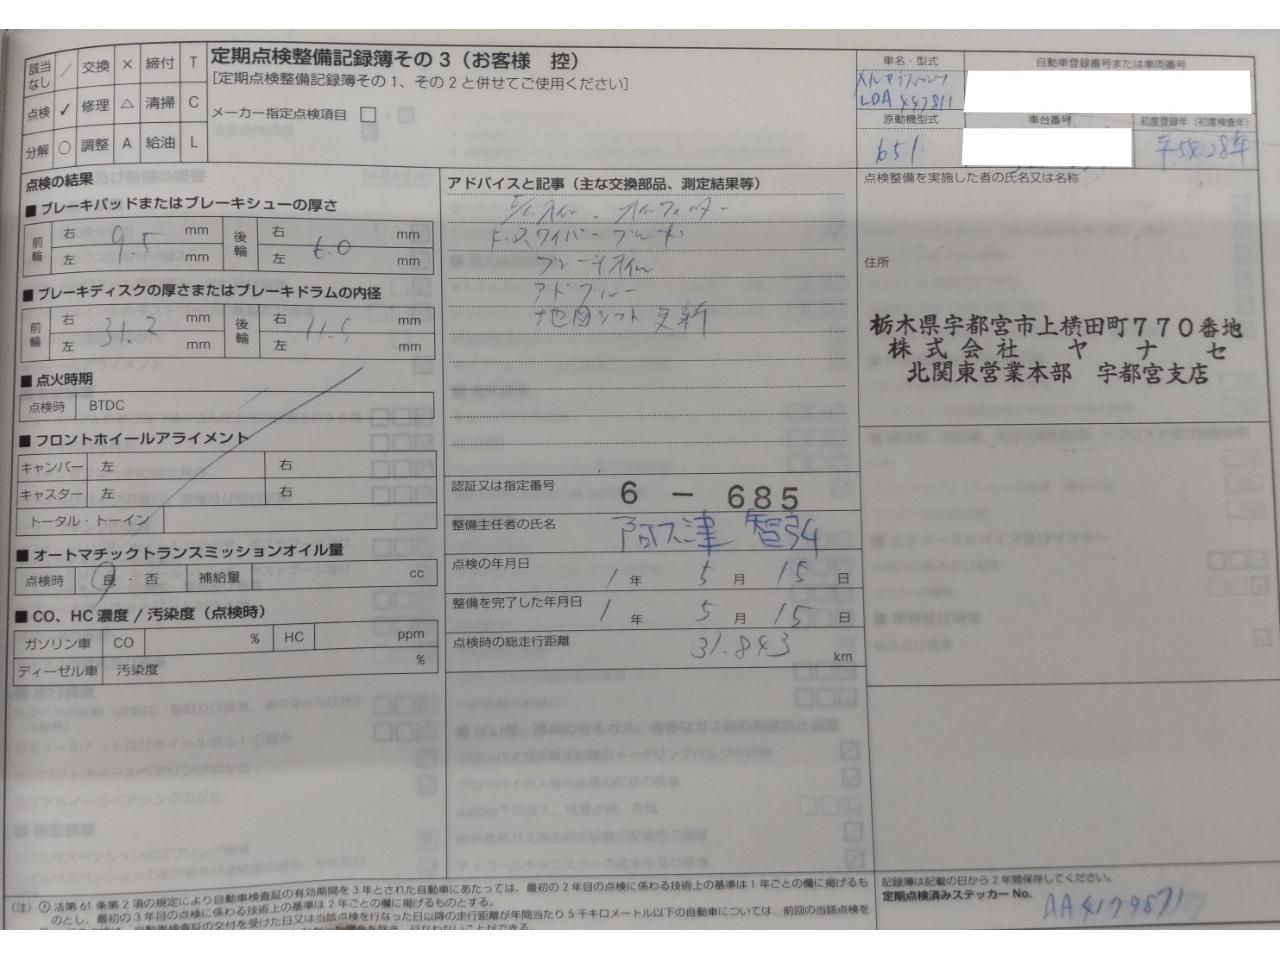 該当なし / 交換 × 締付 T
点検 ✓ 修理 △ 清掃 C
分解 ○ 調整 A 給油 L
定期点検整備記録簿その3（お客様 控）
[定期点検整備記録簿その1、その2と併せてご使用ください]
メーカー指定点検項目 □
車名・型式
LDA 447811
自動車登録番号または車両番号
原動機型式
651
車台番号
初度登録年（初度検査年）
平成28年
点検の結果
■ ブレーキパッドまたはブレーキシューの厚さ
前輪 右 9.5 mm 後輪 右 6.0 mm
左 mm 左 mm
■ ブレーキディスクの厚さまたはブレーキドラムの内径
前輪 右 31.2 mm 後輪 右 11.5 mm
左 mm 左 mm
■ 点火時期
点検時 BTDC
■ フロントホイールアライメント
キャンバー 左 右
キャスター 左 右
トータル・トーイン
■ オートマチックトランスミッションオイル量
点検時 良・否 補給量 cc
■ CO、HC 濃度 / 汚染度（点検時）
ガソリン車 CO % HC ppm
ディーゼル車 汚染度 %
アドバイスと記事（主な交換部品、測定結果等）
ワイパーブレード
ブレーキオイル
アドブルー
地図ソフト 更新
認証又は指定番号 6 － 685
整備主任者の氏名 阿久津 智弘
点検の年月日 1 年 5 月 15 日
整備を完了した年月日 1 年 5 月 15 日
点検時の総走行距離 31.843 km
点検整備を実施した者の氏名又は名称
住所
栃木県宇都宮市上横田町７７０番地
株式会社 ヤナセ
北関東営業本部 宇都宮支店
（注）① 法第 61 条第 2 項の規定により自動車検査証の有効期間を 3 年とされた自動車にあたっては、最初の 2 年目の点検に係わる技術上の基準は 1 年ごとの欄に掲げるも
のとし、最初の 3 年目の点検に係わる技術上の基準は 2 年ごとの欄に掲げるものとする。
自動車検査証の交付を受けた日又は当該点検を行なった日以降の走行距離が年間当たり 5 千キロメートル以下の自動車については、前回の当該点検を
記録簿は記載の日から 2 年間保存してください。
定期点検済みステッカー No. AA4179871